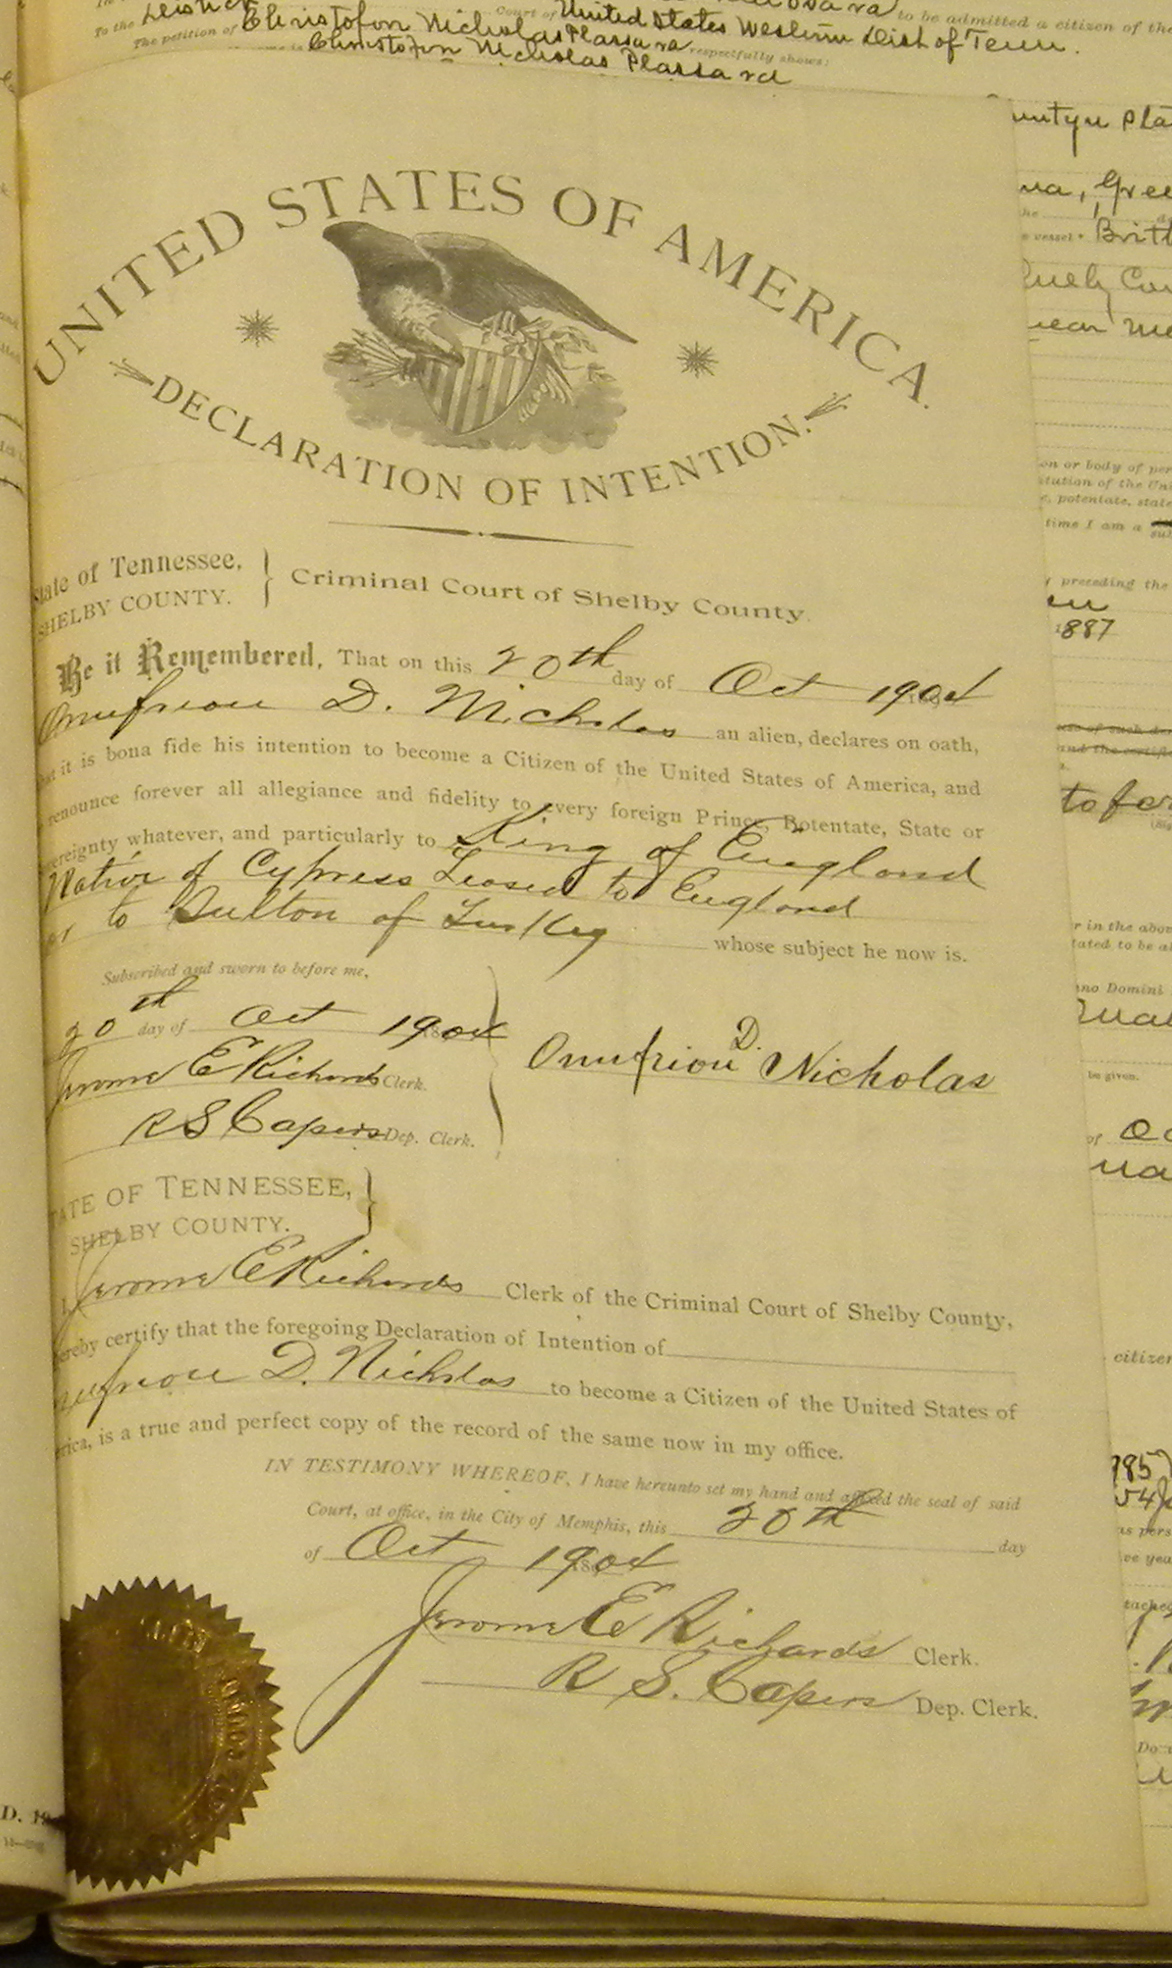 to be admitted a citizen of the
To the District Court of United States Western Dist of Tenn.
The petition of Christofor Nicholas Plassara respectfully shows:
Christofor Nicholas Plassara
UNITED STATES OF AMERICA.
DECLARATION OF INTENTION.
State of Tennessee,
SHELBY COUNTY.
Criminal Court of Shelby County.
Be it Remembered, That on this 20th day of Oct 1904
Onufriou D. Nicholas an alien, declares on oath,
it is bona fide his intention to become a Citizen of the United States of America, and
renounce forever all allegiance and fidelity to every foreign Prince, Potentate, State or
whatever, and particularly to King of England
Native of Cypress Leased to England
or to Sulton of Turkey whose subject he now is.
Subscribed and sworn to before me,
20th day of Oct 1904
Jerome E Richards Clerk.
R S Capers Dep. Clerk.
Onufriou D. Nicholas
STATE OF TENNESSEE,
SHELBY COUNTY.
I, Jerome E Richards Clerk of the Criminal Court of Shelby County,
hereby certify that the foregoing Declaration of Intention of
Onufriou D. Nicholas to become a Citizen of the United States of
is a true and perfect copy of the record of the same now in my office.
IN TESTIMONY WHEREOF, I have hereunto set my hand and affixed the seal of said
Court, at office, in the City of Memphis, this 20th day
of Oct 1904
Jerome E Richards Clerk.
R S. Capers Dep. Clerk.
D. 19
vessel
1887
preceding the
time I am a
or body of
potentate,
in the
Domini
be given.
of
citizen